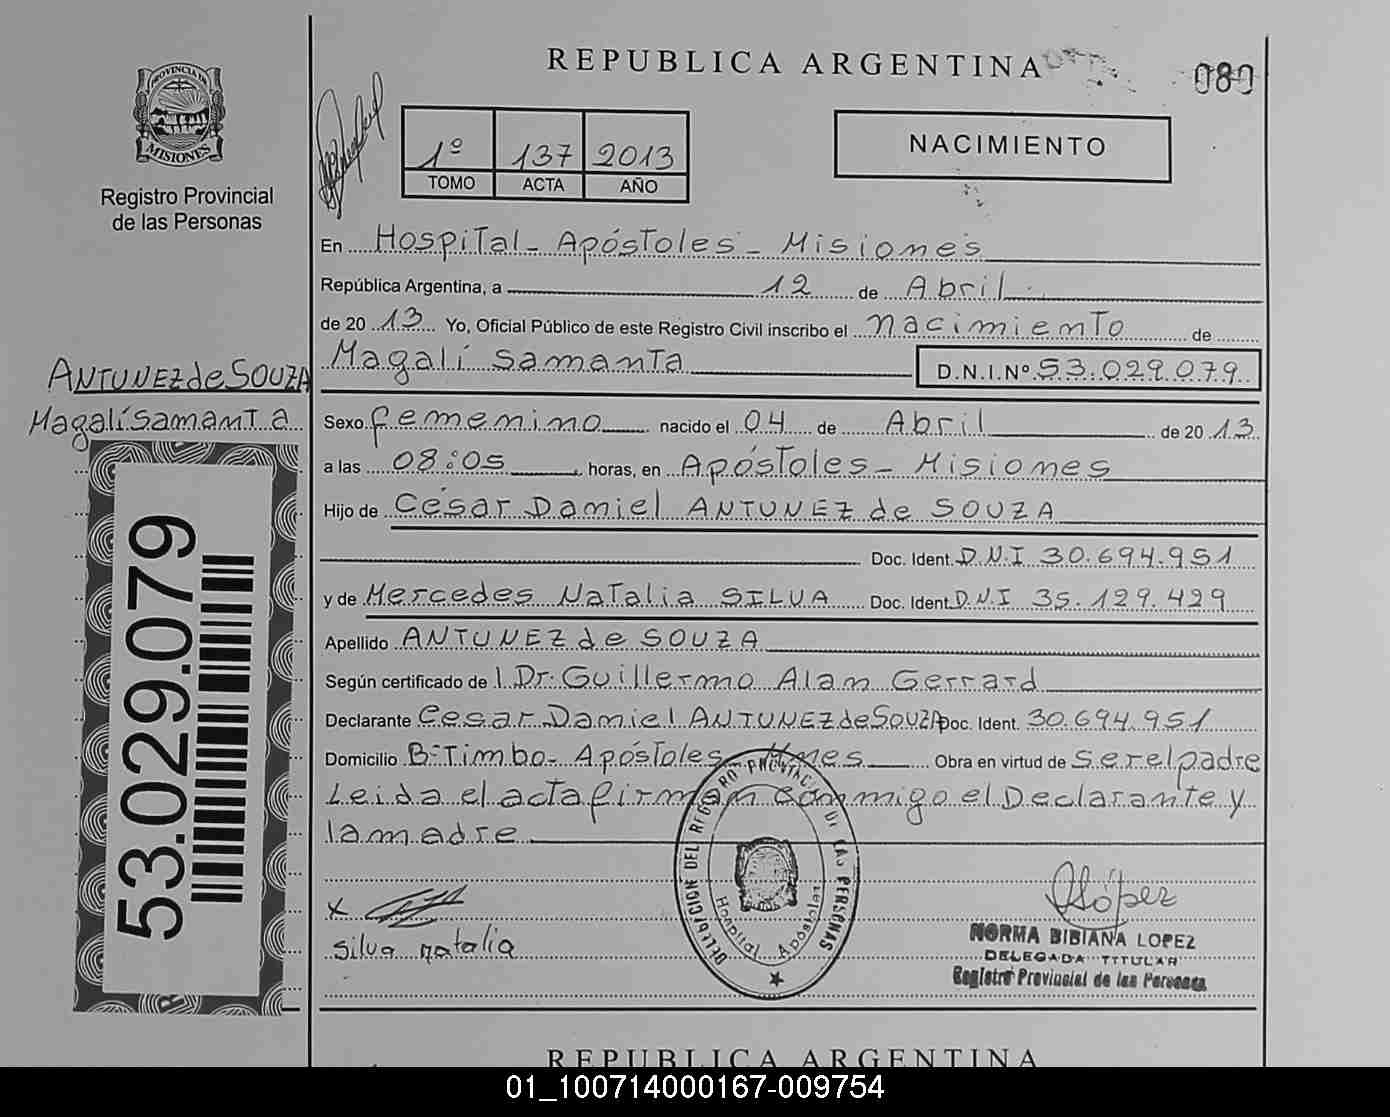 REPUBLICA ARGENTINA
080
PROVINCIA DE
MISIONES
Registro Provincial
de las Personas
1º 137 2013
TOMO ACTA AÑO
NACIMIENTO
En Hospital - Apóstoles - Misiones
República Argentina, a 12 de Abril
de 20 13 Yo, Oficial Público de este Registro Civil inscribo el nacimiento de
Magalí Samanta D.N.I.Nº 53.029.079
ANTUNEZ de SOUZA
Magalí Samanta
Sexo femenino nacido el 04 de Abril de 20 13
a las 08:05 horas, en Apóstoles - Misiones
Hijo de César Daniel ANTUNEZ de SOUZA
Doc. Ident. D.N.I 30.694.951
y de Mercedes Natalia SILVA Doc. Ident. D.N.I 35.129.429
Apellido ANTUNEZ de SOUZA
Según certificado de l Dr. Guillermo Alan Gerrard
Declarante Cesar Daniel ANTUNEZ de SOUZA Doc. Ident. 30.694.951
Domicilio Bº Timbo - Apóstoles - Mnes Obra en virtud de ser el padre
Leida el acta firman conmigo el Declarante y
la madre
53.029.079
x
Silva natalia
DELEGACION DEL REGISTRO PROVINCIAL DE LAS PERSONAS
Hospital Apóstoles
López
NORMA BIBIANA LOPEZ
DELEGADA TITULAR
Registro Provincial de las Personas
REPUBLICA ARGENTINA
01_100714000167-009754